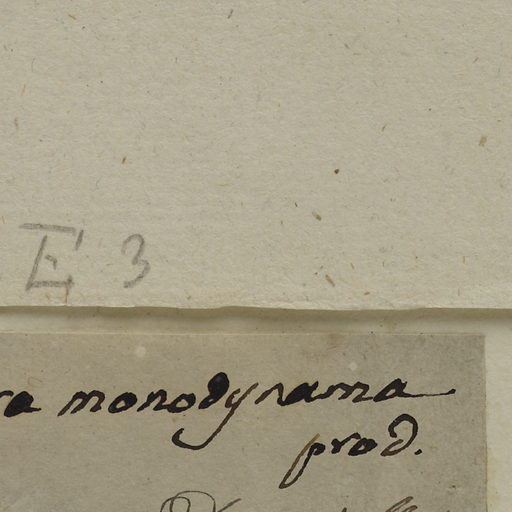 E 3
ra monodynama
prod.